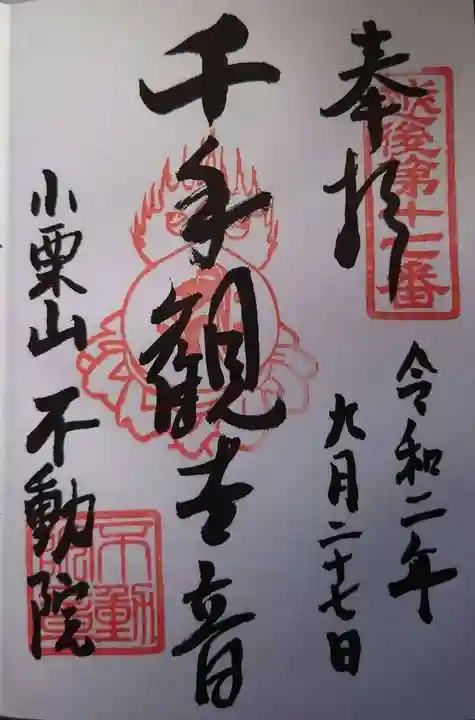 奉拝
越後第十七番
令和二年
九月二十七日
千手観世音
小栗山 不動院
不動
院印